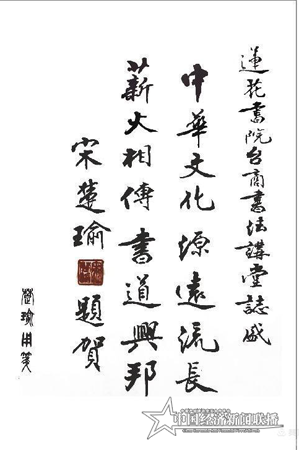 蓮花書院台商書法講堂誌盛
中華文化源遠流長
薪火相傳書道興邦
宋楚瑜題賀
楚瑜用箋
中国经济新闻联播